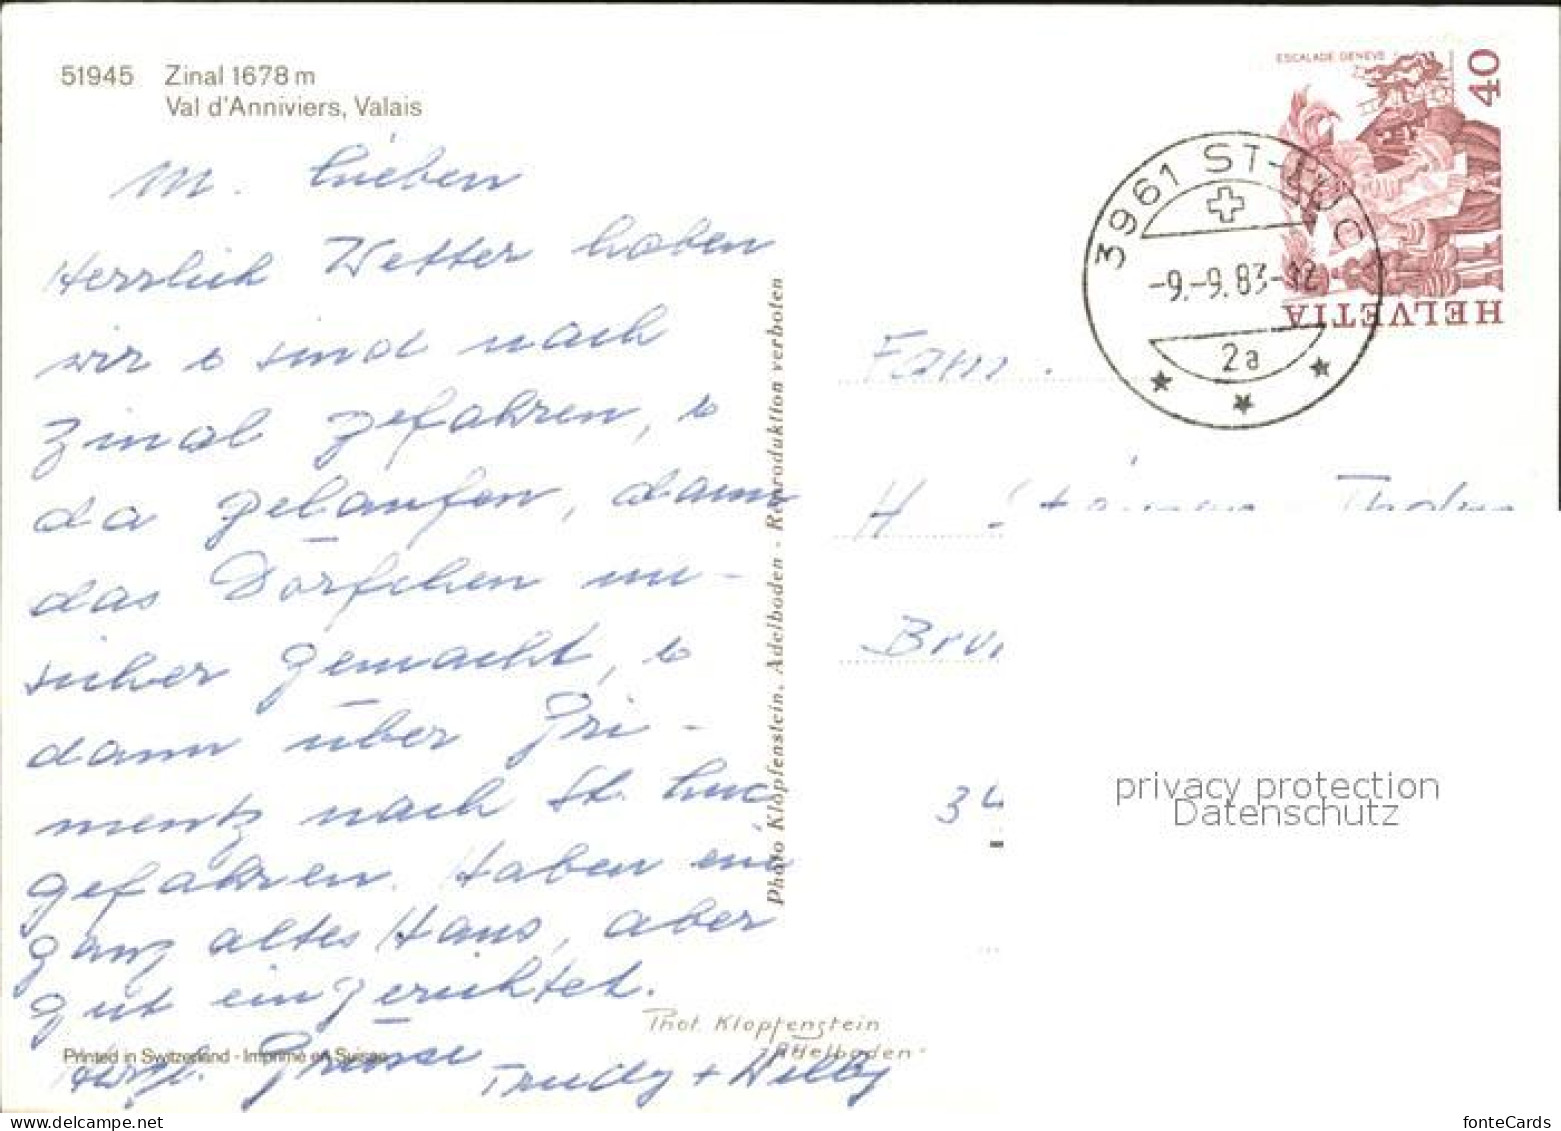 51945 Zinal 1678 m
Val d'Anniviers, Valais
M. Lieben
Herrlich Wetter haben
wir & sind nach
Zinal gefahren, &
da gelaufen, dann
das Dörfchen un-
sicher gemacht, &
dann über Gri-
mentz nach St. Luc
gefahren. Haben ein
ganz altes Haus, aber
gut eingerichtet.
Herzl. Grüsse
Trudy + Willy
Printed in Switzerland - Imprimé en Suisse
Phot. Klopfenstein
Adelboden
Photo Klopfenstein, Adelboden - Reproduktion verboten
ESCALADE GENEVE
40
HELVETIA
3961 ST-LUC
-9.-9.83-12
2a
Fam.
H.
34
privacy protection
Datenschutz
delcampe.net
fonteCards